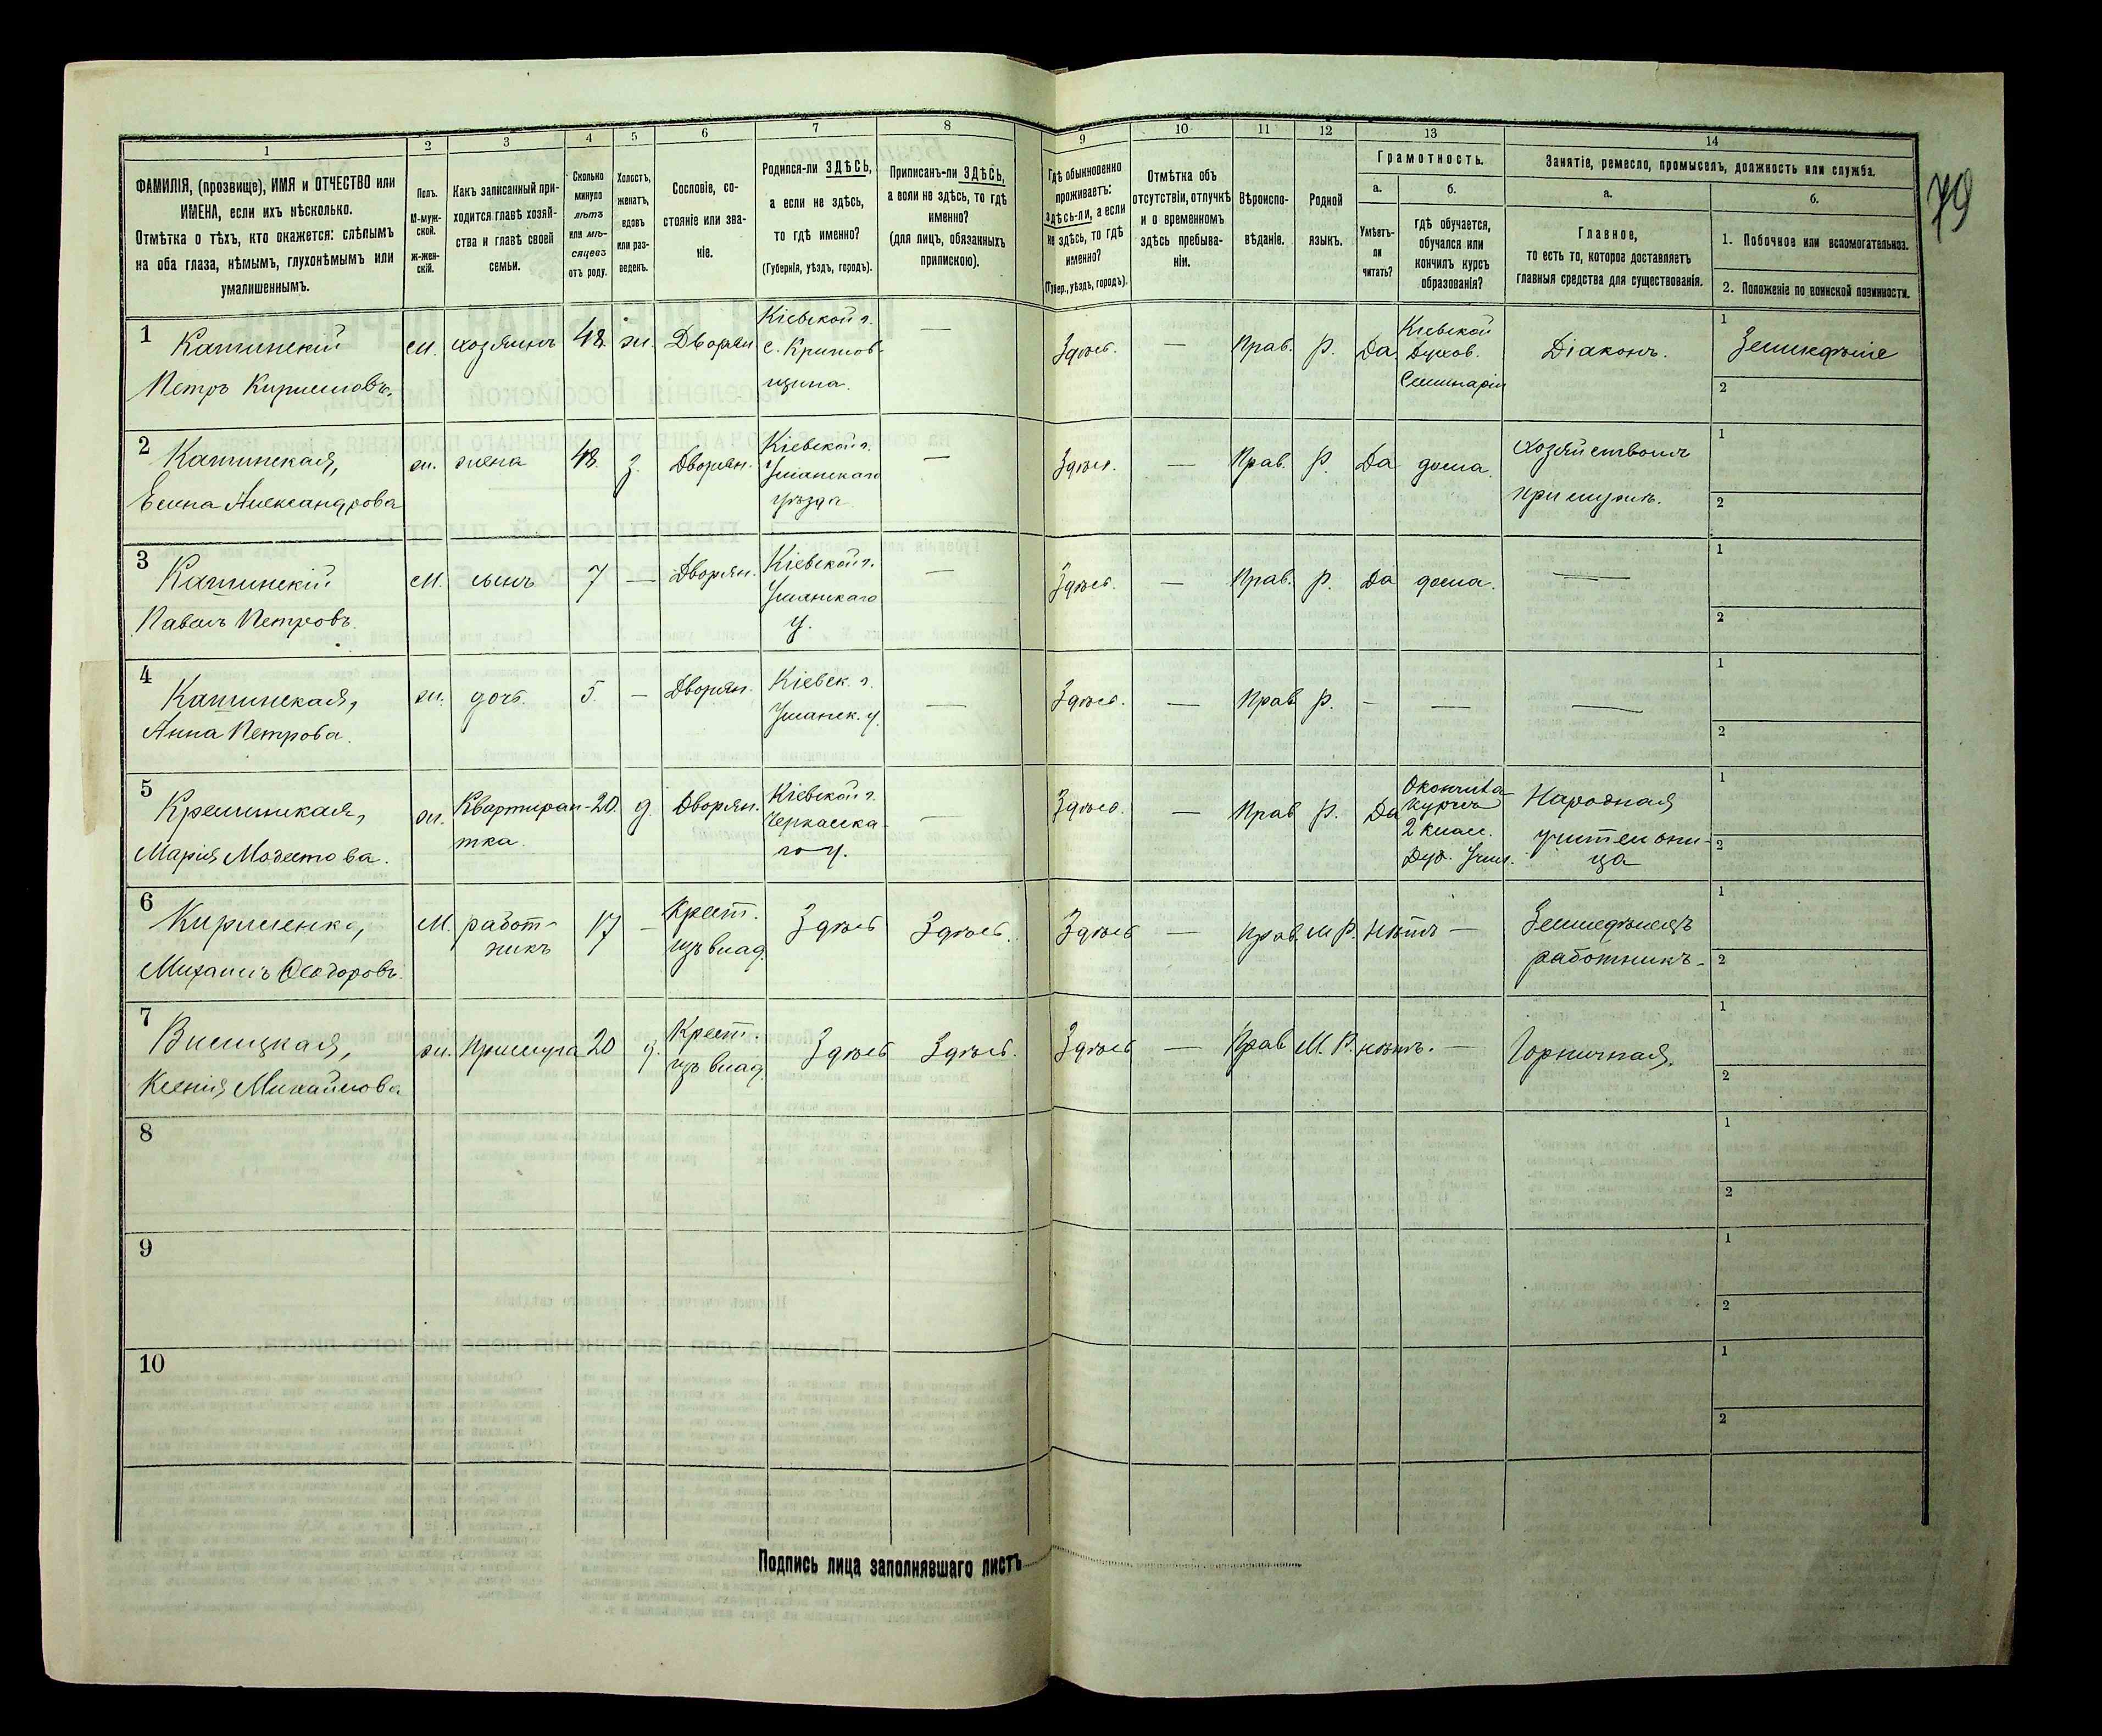 79
1
2
3
4
5
6
7
8
9
10
11
12
13
14
ФАМИЛІЯ, (прозвище), ИМЯ и ОТЧЕСТВО или
ИМЕНА, если ихъ нѣсколько.
Отмѣтка о тѣхъ, кто окажется: слѣпымъ
на оба глаза, нѣмымъ, глухонѣмымъ или
умалишеннымъ.
Полъ.
М-муж-
ской.
Ж-жен-
скій.
Какъ записанный при-
ходится главѣ хозяй-
ства и главѣ своей
семьи.
Сколько
минуло
лѣтъ
или мѣ-
сяцевъ
отъ роду.
Холостъ,
женатъ,
вдовъ
или раз-
веденъ.
Сословіе, со-
стояніе или зва-
ніе.
Родился-ли ЗДѢСЬ,
а если не здѣсь,
то гдѣ именно?
(Губернія, уѣздъ, городъ).
Приписанъ-ли ЗДѢСЬ,
а если не здѣсь, то гдѣ
именно?
(для лицъ, обязанныхъ
припискою).
Гдѣ обыкновенно
проживаетъ:
здѣсь-ли, а если
не здѣсь, то гдѣ
именно?
(Губер., уѣздъ, городъ).
Отмѣтка объ
отсутствіи, отлучкѣ
и о временномъ
здѣсь пребыва-
ніи.
Вѣроиспо-
вѣданіе.
Родной
языкъ.
Грамотность.
а.
Умѣетъ-
ли
читать?
б.
Гдѣ обучается,
обучался или
кончилъ курсъ
образованія?
Занятіе, ремесло, промыселъ, должность или служба.
а.
Главное,
то есть то, которое доставляетъ
главныя средства для существованія.
б.
1. Побочное или вспомогательное.
2. Положеніе по воинской повинности.
1
Петръ Кирилловъ.
М. хозяинъ 48. ж. Дворян
Кіевской г.
с. Критов-
щина.
—
Здѣсь. — Прав. р. Да
Кіевской
Духов.
Семинаріи
Діаконъ.
1 Земледѣліе
2
2
Елена Александрова
ж. жена 48. з. Дворян.
Кіевской г.
Уманскаго
уѣзда
—
Здѣсь. — Прав. р. Да дома.
Хозяйствомъ
при мужѣ.
1
2
3
Павелъ Петровъ.
М. сынъ 7 — Дворян.
Кіевской г.
Уманскаго
у.
—
Здѣсь. — Прав. р. Да дома. —
1
2
4
Анна Петрова.
ж. дочь. 5. — Дворян.
Кіевск. г.
Уманск. у.
—
Здѣсь. — Прав р. — — —
1
2
5
Марія Модестова.
ж. Квартиран-
тка.
20. д. Дворян.
Кіевской г.
Черкасска-
го у.
—
Здѣсь. — Прав р. Да
Окончила
курсъ
2 класс.
Дух. Учил.
Народная
учительни-
ца
1
2
6
Кириленко,
Михаилъ Ѳеодоровъ.
М. работ-
никъ
17 —
Крест.
изъ влад.
Здѣсь Здѣсь. Здѣсь — Прав. М.Р. нѣтъ —
Земледѣлецъ
работникъ.
1
2
7
Ксенія Михайлова
ж. прислуга 20 д.
Крест.
изъ влад.
Здѣсь Здѣсь. Здѣсь — Прав М.Р. нѣтъ. —
Горничная.
1
2
8
1
2
9
1
2
10
1
2
Подпись лица заполнявшаго листъ